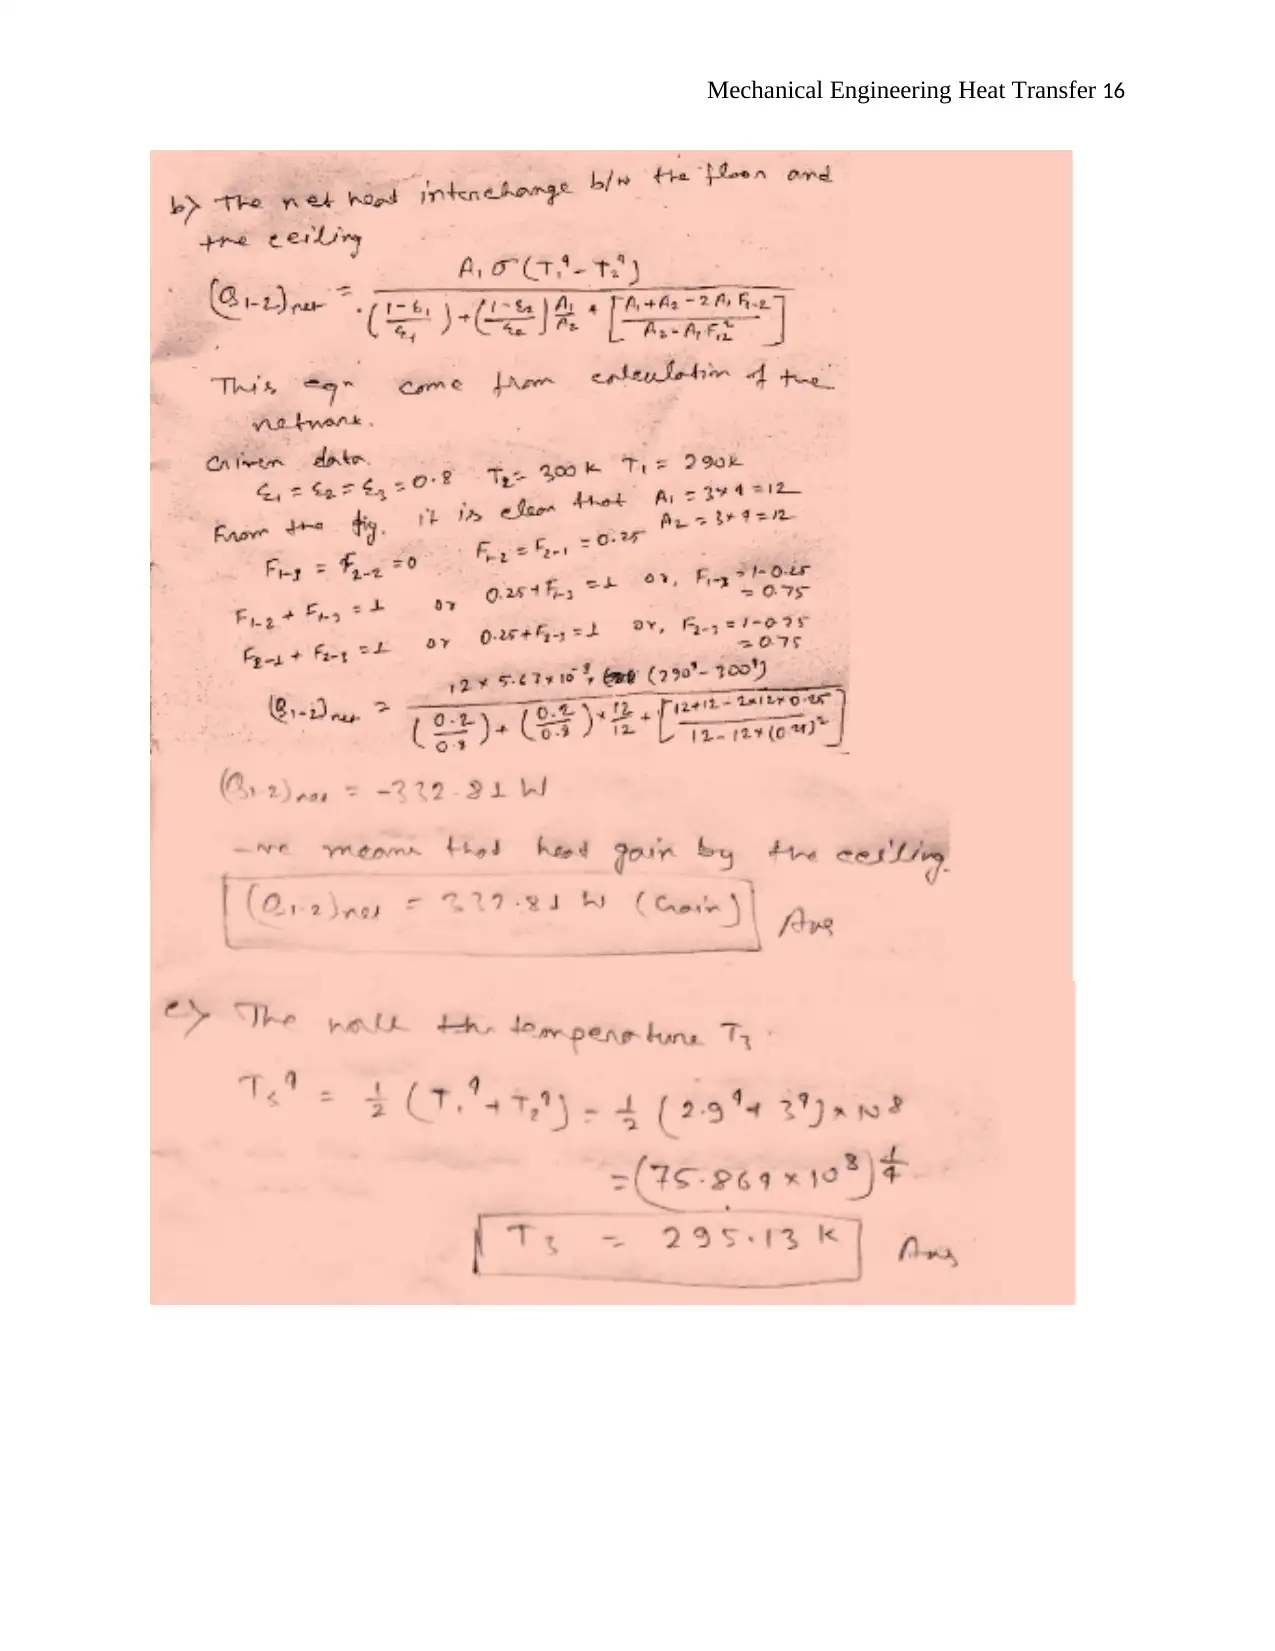 Mechanical Engineering Heat Transfer 16
b) The net heat interchange b/w the floor and
the ceiling
(Q1-2)net = A1 σ (T1^4 - T2^4) / ((1-ε1)/ε1) + ((1-ε2)/ε2) A1/A2 + [(A1 + A2 - 2 A1 F1-2) / (A2 - A1 F12^2)]
This eqn come from calculation of the
network.
Given data
ε1 = ε2 = ε3 = 0.8 T2 = 300 K T1 = 290K
From the fig. it is clear that A1 = 3×4 = 12
A2 = 3×4 = 12
F1-1 = F2-2 = 0 F1-2 = F2-1 = 0.25
F1-2 + F1-3 = 1 or 0.25 + F1-3 = 1 or, F1-3 = 1-0.25
= 0.75
F2-1 + F2-3 = 1 or 0.25 + F2-3 = 1 or, F2-3 = 1-0.25
= 0.75
(Q1-2)net = 12 × 5.67 × 10^-8 × (290^4 - 300^4) / (0.2/0.8) + (0.2/0.8) × 12/12 + [(12+12 - 2×12×0.25) / (12 - 12×(0.25)^2)]
(Q1-2)net = -332.81 W
-ve means that heat gain by the ceiling.
(Q1-2)net = 332.81 W (Gain) Ans
c) The wall the temperature T3
T3^4 = 1/2 (T1^4 + T2^4) = 1/2 (2.9^4 + 3^4) × 10^8
= (75.864 × 10^8)^1/4
T3 = 295.13 K Ans